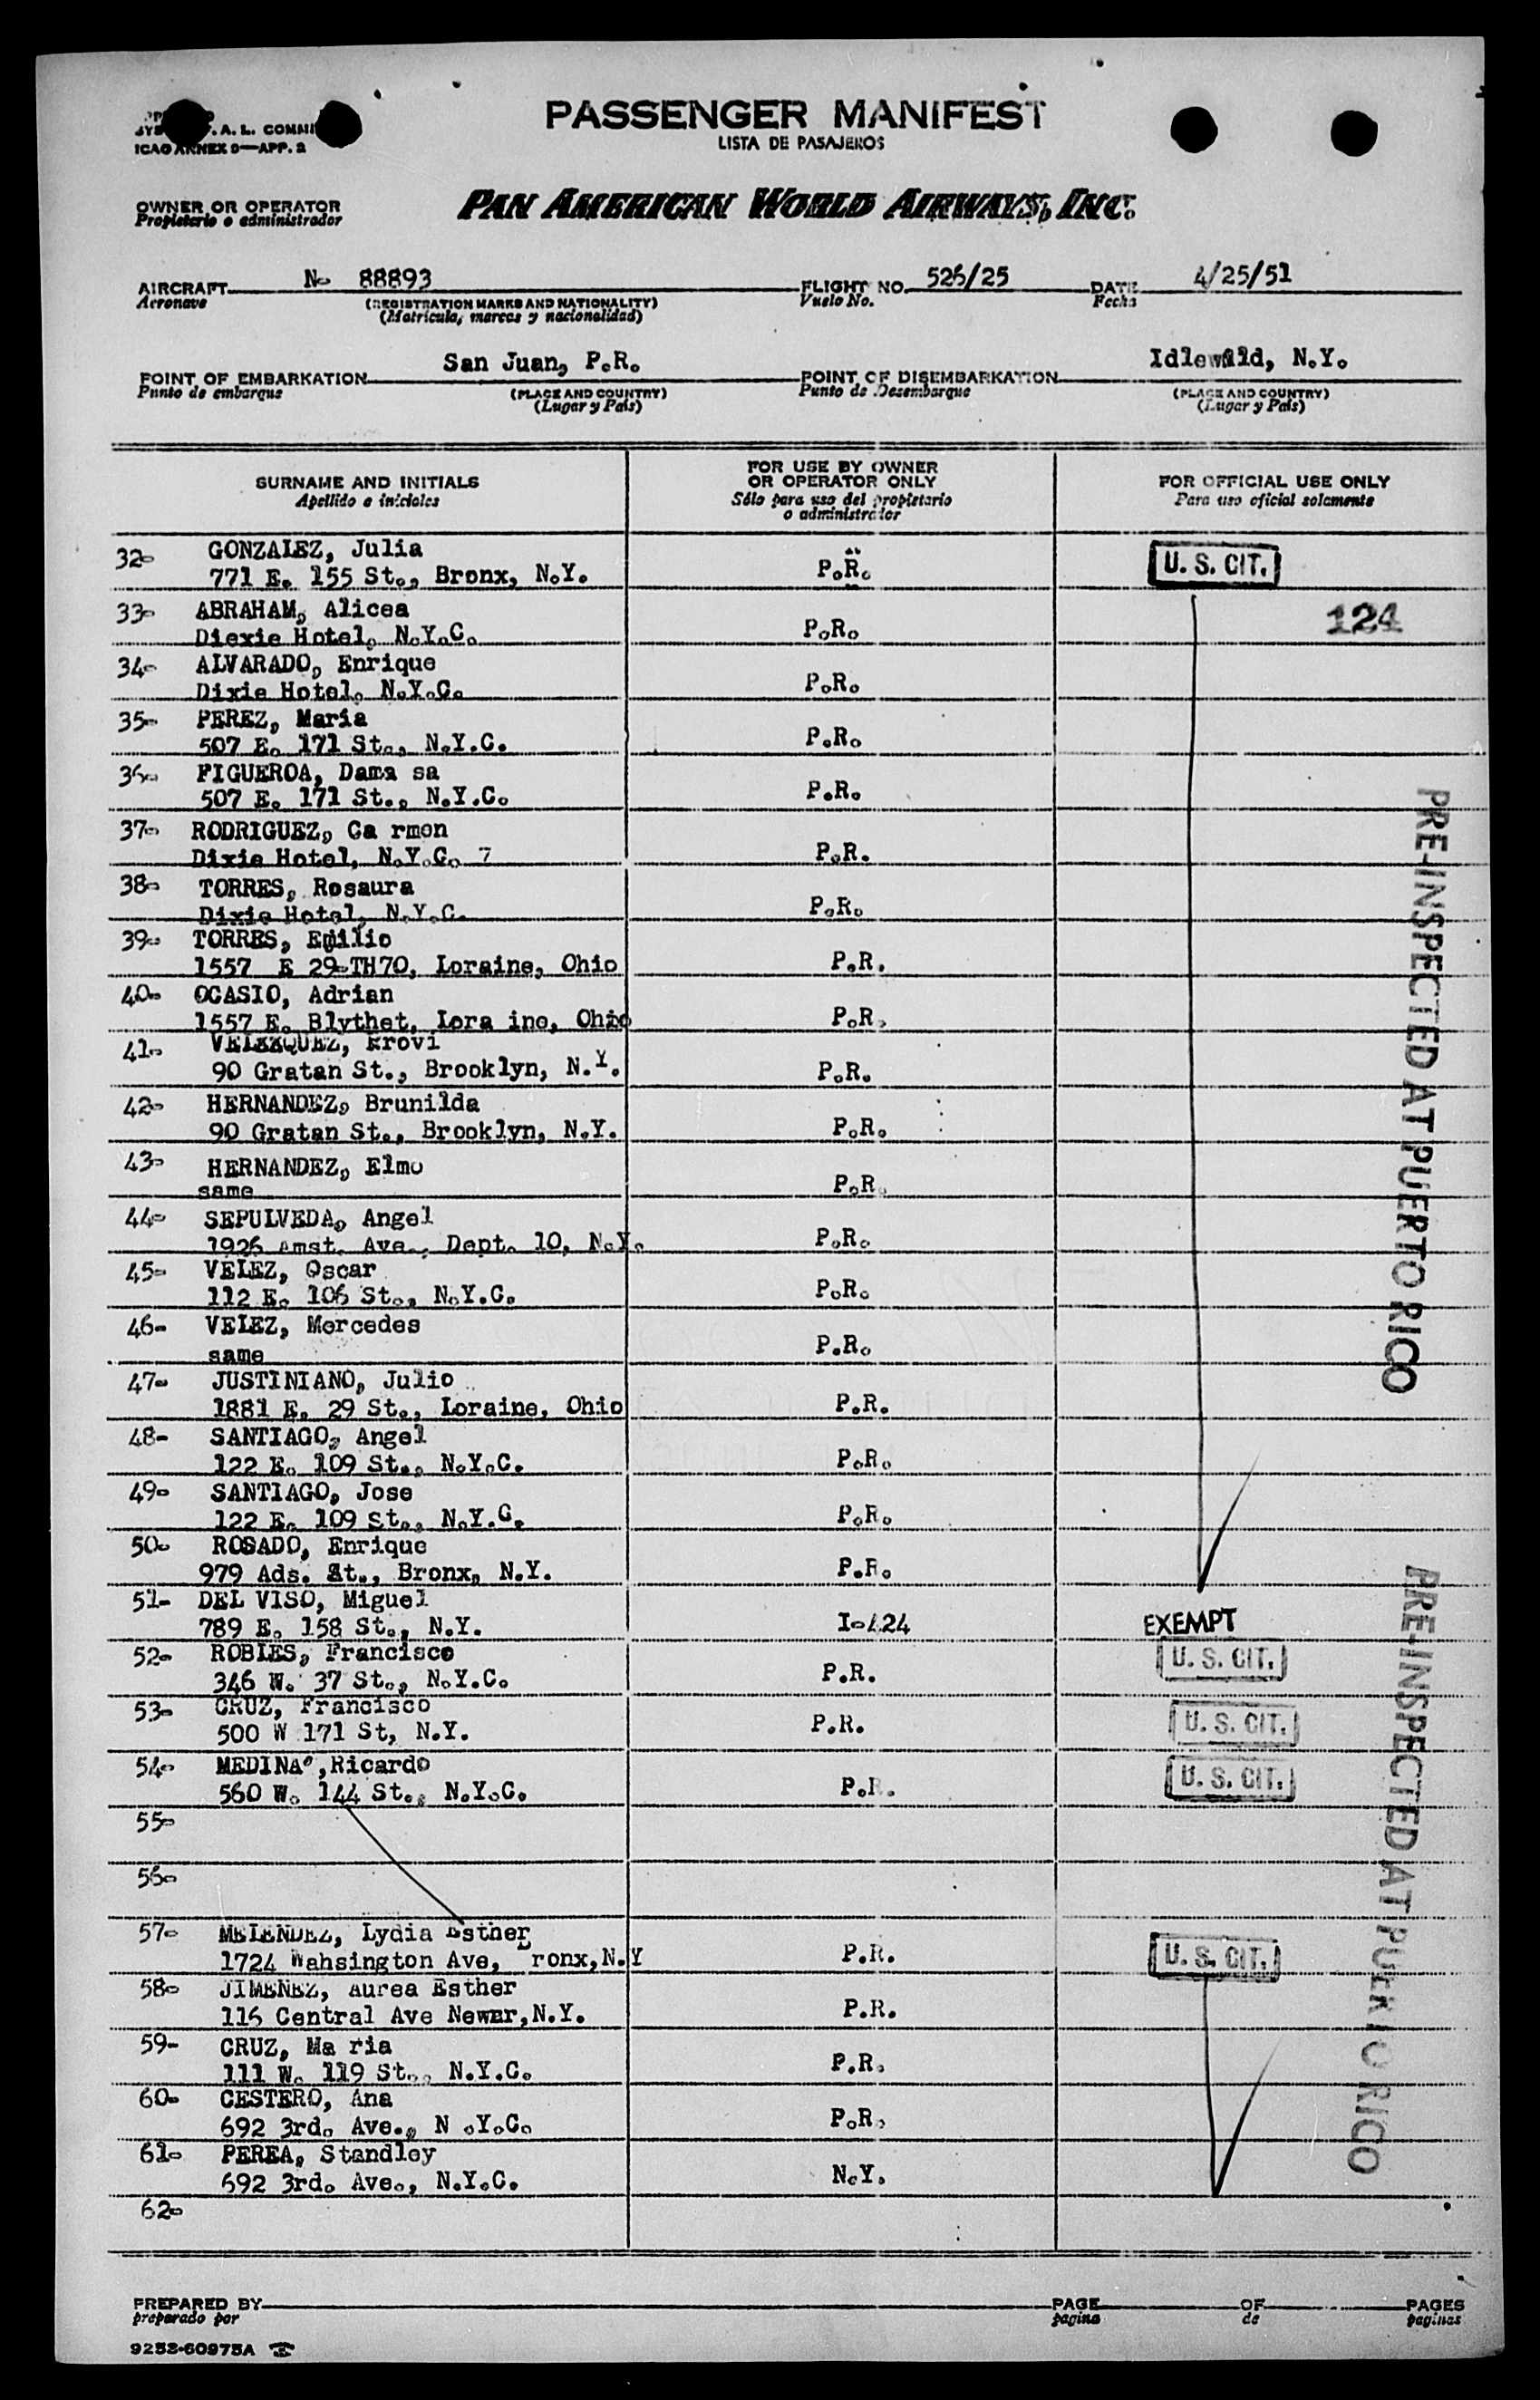 PASSENGER MANIFEST
LISTA DE PASAJEROS
A. L.
ICAO ANNEX 9—APP. 2
OWNER OR OPERATOR
Propietario o administrador
PAN AMERICAN WORLD AIRWAYS, INC.
AIRCRAFT No 88893 FLIGHT NO. 526/25 DATE 4/25/51
Aeronave (REGISTRATION MARKS AND NATIONALITY) Vuelo No. Fecha
(Matricula, marcas y nacionalidad)
POINT OF EMBARKATION San Juan, P.R. POINT OF DISEMBARKATION Idlewild, N.Y.
Punto de embarque (PLACE AND COUNTRY) Punto de Desembarque (PLACE AND COUNTRY)
(Lugar y País) (Lugar y País)
SURNAME AND INITIALS
Apellido e iniciales
FOR USE BY OWNER
OR OPERATOR ONLY
Sólo para uso del propietario
o administrador
FOR OFFICIAL USE ONLY
Para uso oficial solamente
32- GONZALEZ, Julia
771 E. 155 St., Bronx, N.Y. P.R. U. S. CIT.
33- ABRAHAM, Alicea 124
Diexie Hotel, N.Y.C. P.R.
34- ALVARADO, Enrique
Dixie Hotel, N.Y.C. P.R.
35- PEREZ, Maria
507 E. 171 St., N.Y.C. P.R.
36- FIGUEROA, Dama sa
507 E. 171 St., N.Y.C. P.R.
37- RODRIGUEZ, Ca rmen
Dixie Hotel, N.Y.C. 7 P.R.
38- TORRES, Rosaura
Dixie Hotel, N.Y.C. P.R.
39- TORRES, Emilio
1557 E 29-TH70, Loraine, Ohio P.R.
40- OCASIO, Adrian
1557 E. Blythet, Lora ine, Ohio P.R.
41-
90 Gratan St., Brooklyn, N.Y. P.R.
42- HERNANDEZ, Brunilda
90 Gratan St., Brooklyn, N.Y. P.R.
43- HERNANDEZ, Elmo
same P.R.
44- SEPULVEDA, Angel
1926 Amst. Ave., Dept. 10, N.Y. P.R.
45- VELEZ, Oscar
112 E. 106 St., N.Y.C. P.R.
46- VELEZ, Mercedes
same P.R.
47- JUSTINIANO, Julio
1881 E. 29 St., Loraine, Ohio P.R.
48- SANTIAGO, Angel
122 E. 109 St., N.Y.C. P.R.
49- SANTIAGO, Jose
122 E. 109 St., N.Y.C. P.R.
50- ROSADO, Enrique
979 Ads. St., Bronx, N.Y. P.R.
51- DEL VISO, Miguel
789 E. 158 St., N.Y. I-424 EXEMPT
52- ROBLES, Francisco
346 W. 37 St., N.Y.C. P.R. U. S. CIT.
53- CRUZ, Francisco
500 W 171 St, N.Y. P.R. U. S. CIT.
54- MEDINA, Ricardo
560 W. 144 St., N.Y.C. P.R. U. S. CIT.
55-
56-
57- MELENDEZ, Lydia Esther
1724 Wahsington Ave, Bronx,N.Y P.R. U. S. CIT.
58- JIMENEZ, Aurea Esther
116 Central Ave Newar,N.Y. P.R.
59- CRUZ, Ma ria
111 W. 119 St., N.Y.C. P.R.
60- CESTERO, Ana
692 3rd. Ave., N .Y.C. P.R.
61- PEREA, Standley
692 3rd. Ave., N.Y.C. N.Y.
62-
PRE-INSPECTED AT PUERTO RICO
PRE-INSPECTED AT PUERTO RICO
PREPARED BY PAGE OF PAGES
preparado por pagina de paginas
9253-60975A